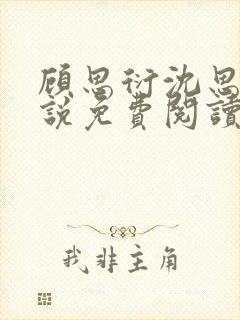 顾思衍沈思
說免費閱讀
我非主角